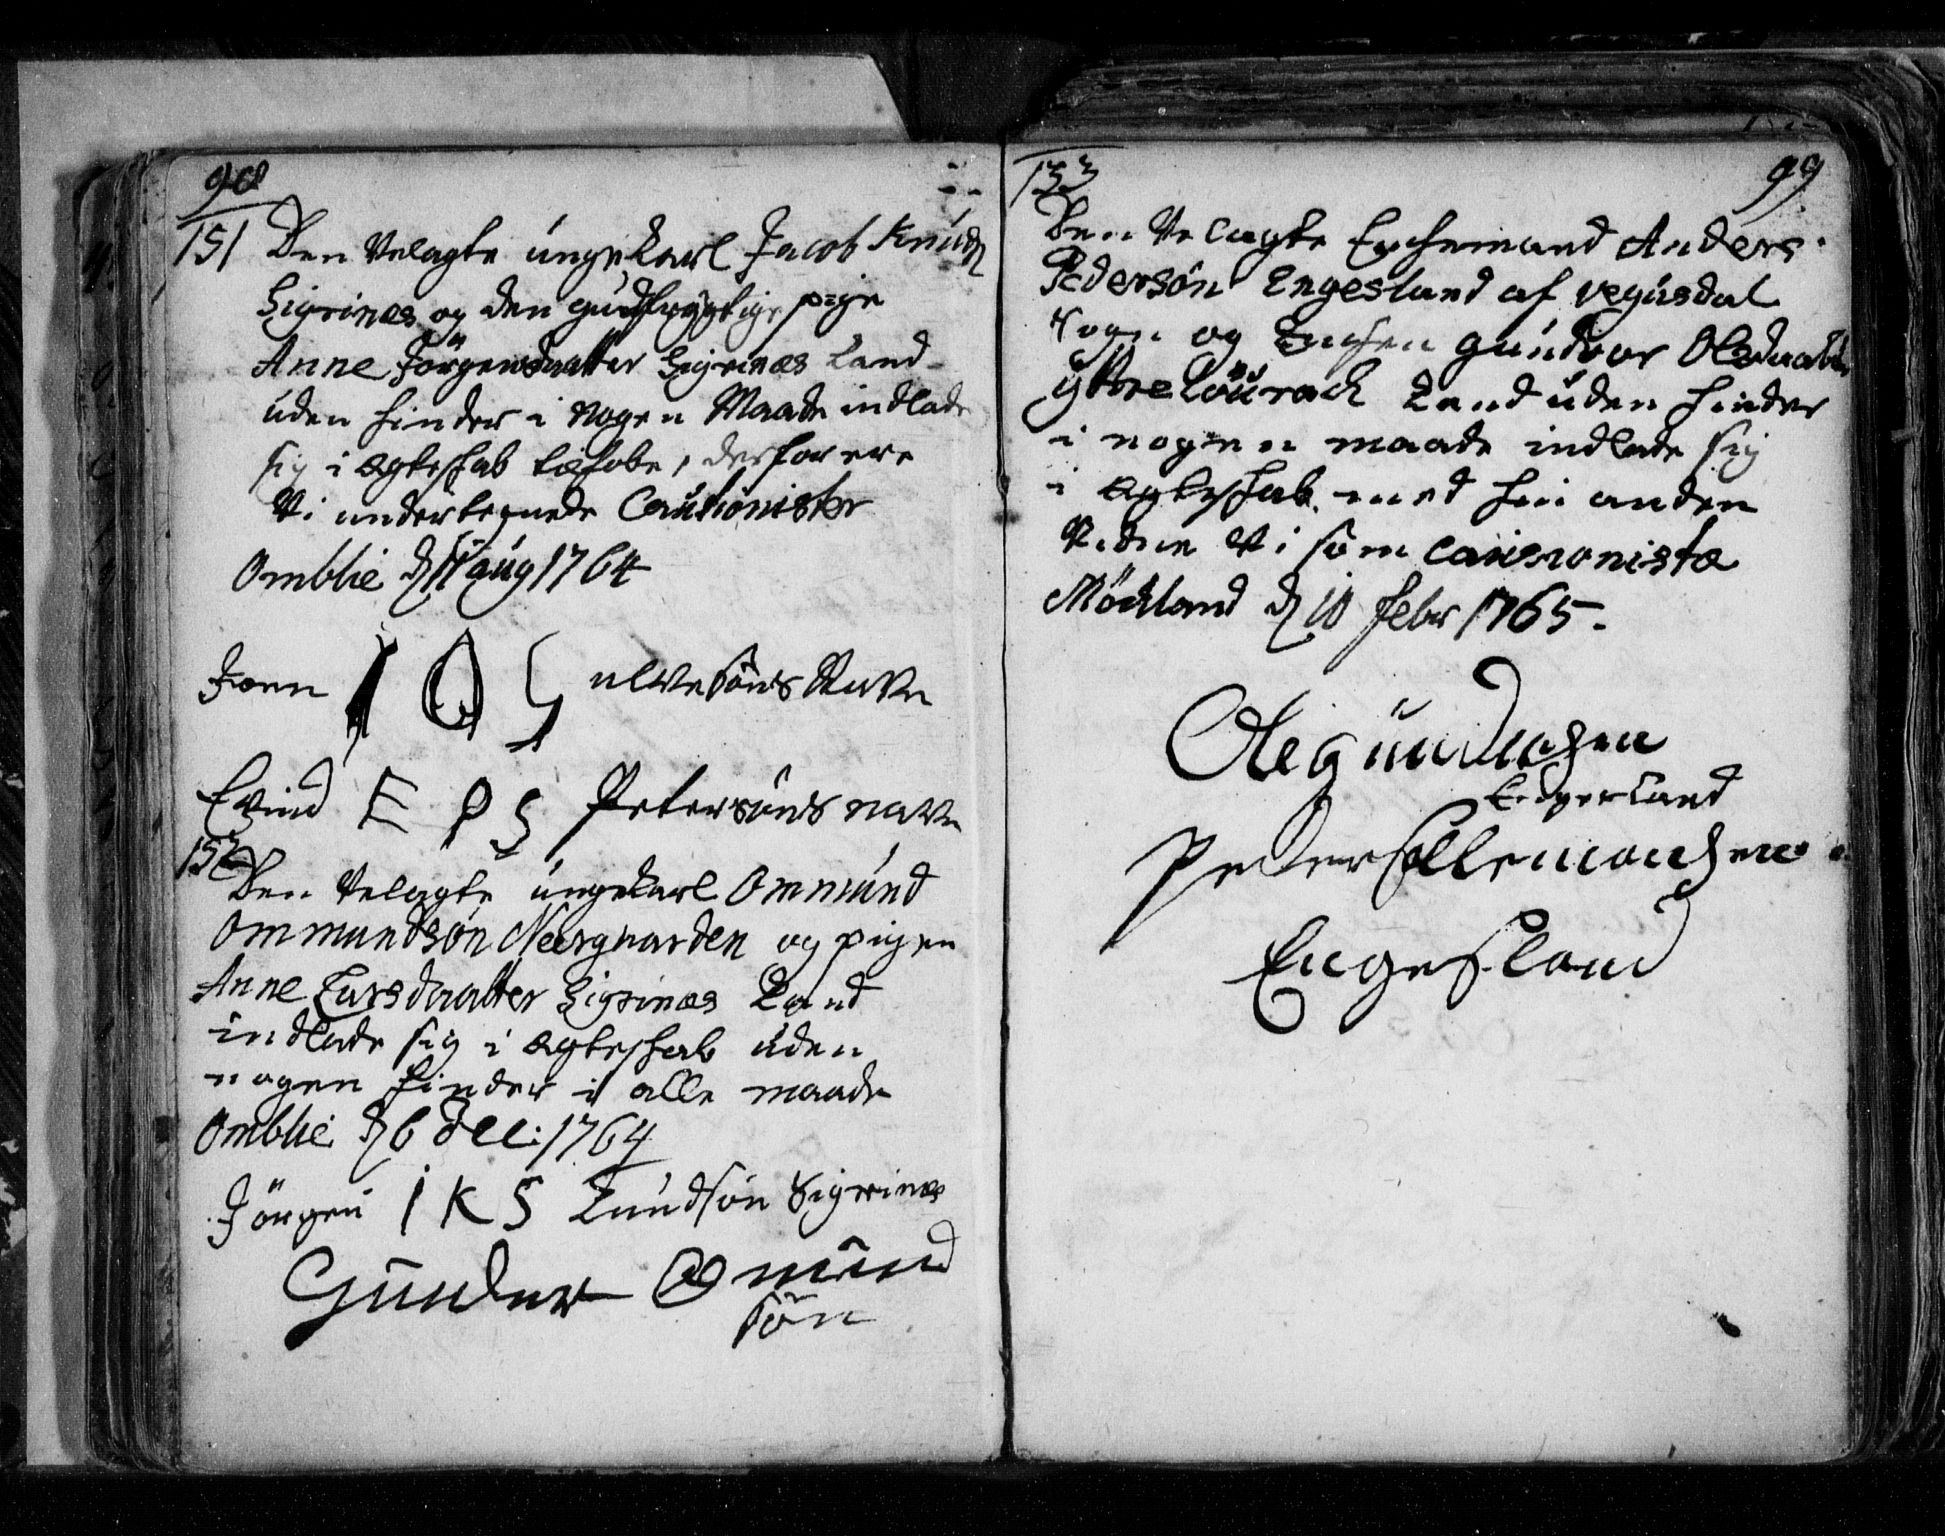 98
151 Den Velagte ungekarl Jacob Knuds
Sigrinæs og den gudfrygtige pige
Anne Jörgensdaatter Sigrinæs kand
uden hinder i Nogen Maade indlade
sig i ægteskab , derfor ere
Vi undertegnede Cautionister
Omblie d 11 aug 1764
Joen I O S ulvesöns Navn
Evind E P S Petersöns navn
152
Den Velagte ungekarl Ommund
Ommundsøn Neergaarden og pigen
Anne Larsdaatter Sigrinæs kand
indlade sig i ægteskab uden
nogen hinder i alle maade
Omblie d 6 Dec: 1764
Jörgen I K S Knudsön Sigrinæs
Gunder Omund
sön
153 99
Den Velagte Enkemand Anders
Pedersön Engesland af vegusdal
Sogn og Enken gundvor Olsdaatter
yttre kand uden hinder
i nogen maade indlade sig
i ægteskab med hin anden
Vidne Vi som cautionistæ
Möckland d 10 febr 1765.
Ole gundersen
Peder Allemandsen
Engesland